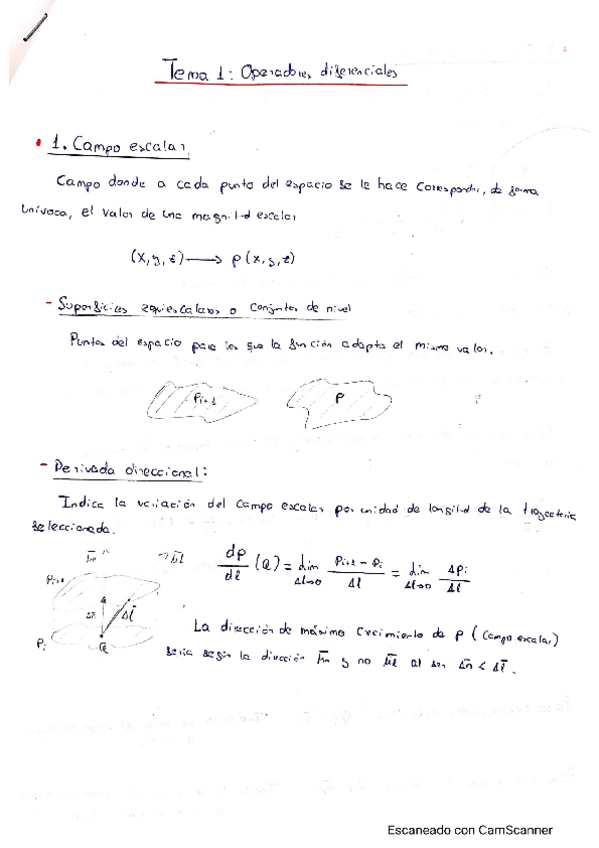 Tema 1: Operadores diferenciales
1. Campo escalar
Campo donde a cada punto del espacio se le hace corresponder, de forma
unívoca, el valor de una magnitud escalar
(x, y, z) ⟶ p (x, y, z)
- Superficies equiescalares o conjuntos de nivel
Puntos del espacio para los que la función adopta el mismo valor.
Pi+1 P
- Derivada direccional:
Indica la variación del campo escalar por unidad de longitud de la trayectoria
seleccionada.
dp/dl (Q) = lim Δl→0 (Pi+1 - Pi)/Δl = lim Δl→0 ΔPi/Δl
Pi+1
Δl
Pi
Q
La dirección de máximo crecimiento de p (campo escalar)
sería según la dirección ūn y no ūl al ser Δn < Δl.
Escaneado con CamScanner